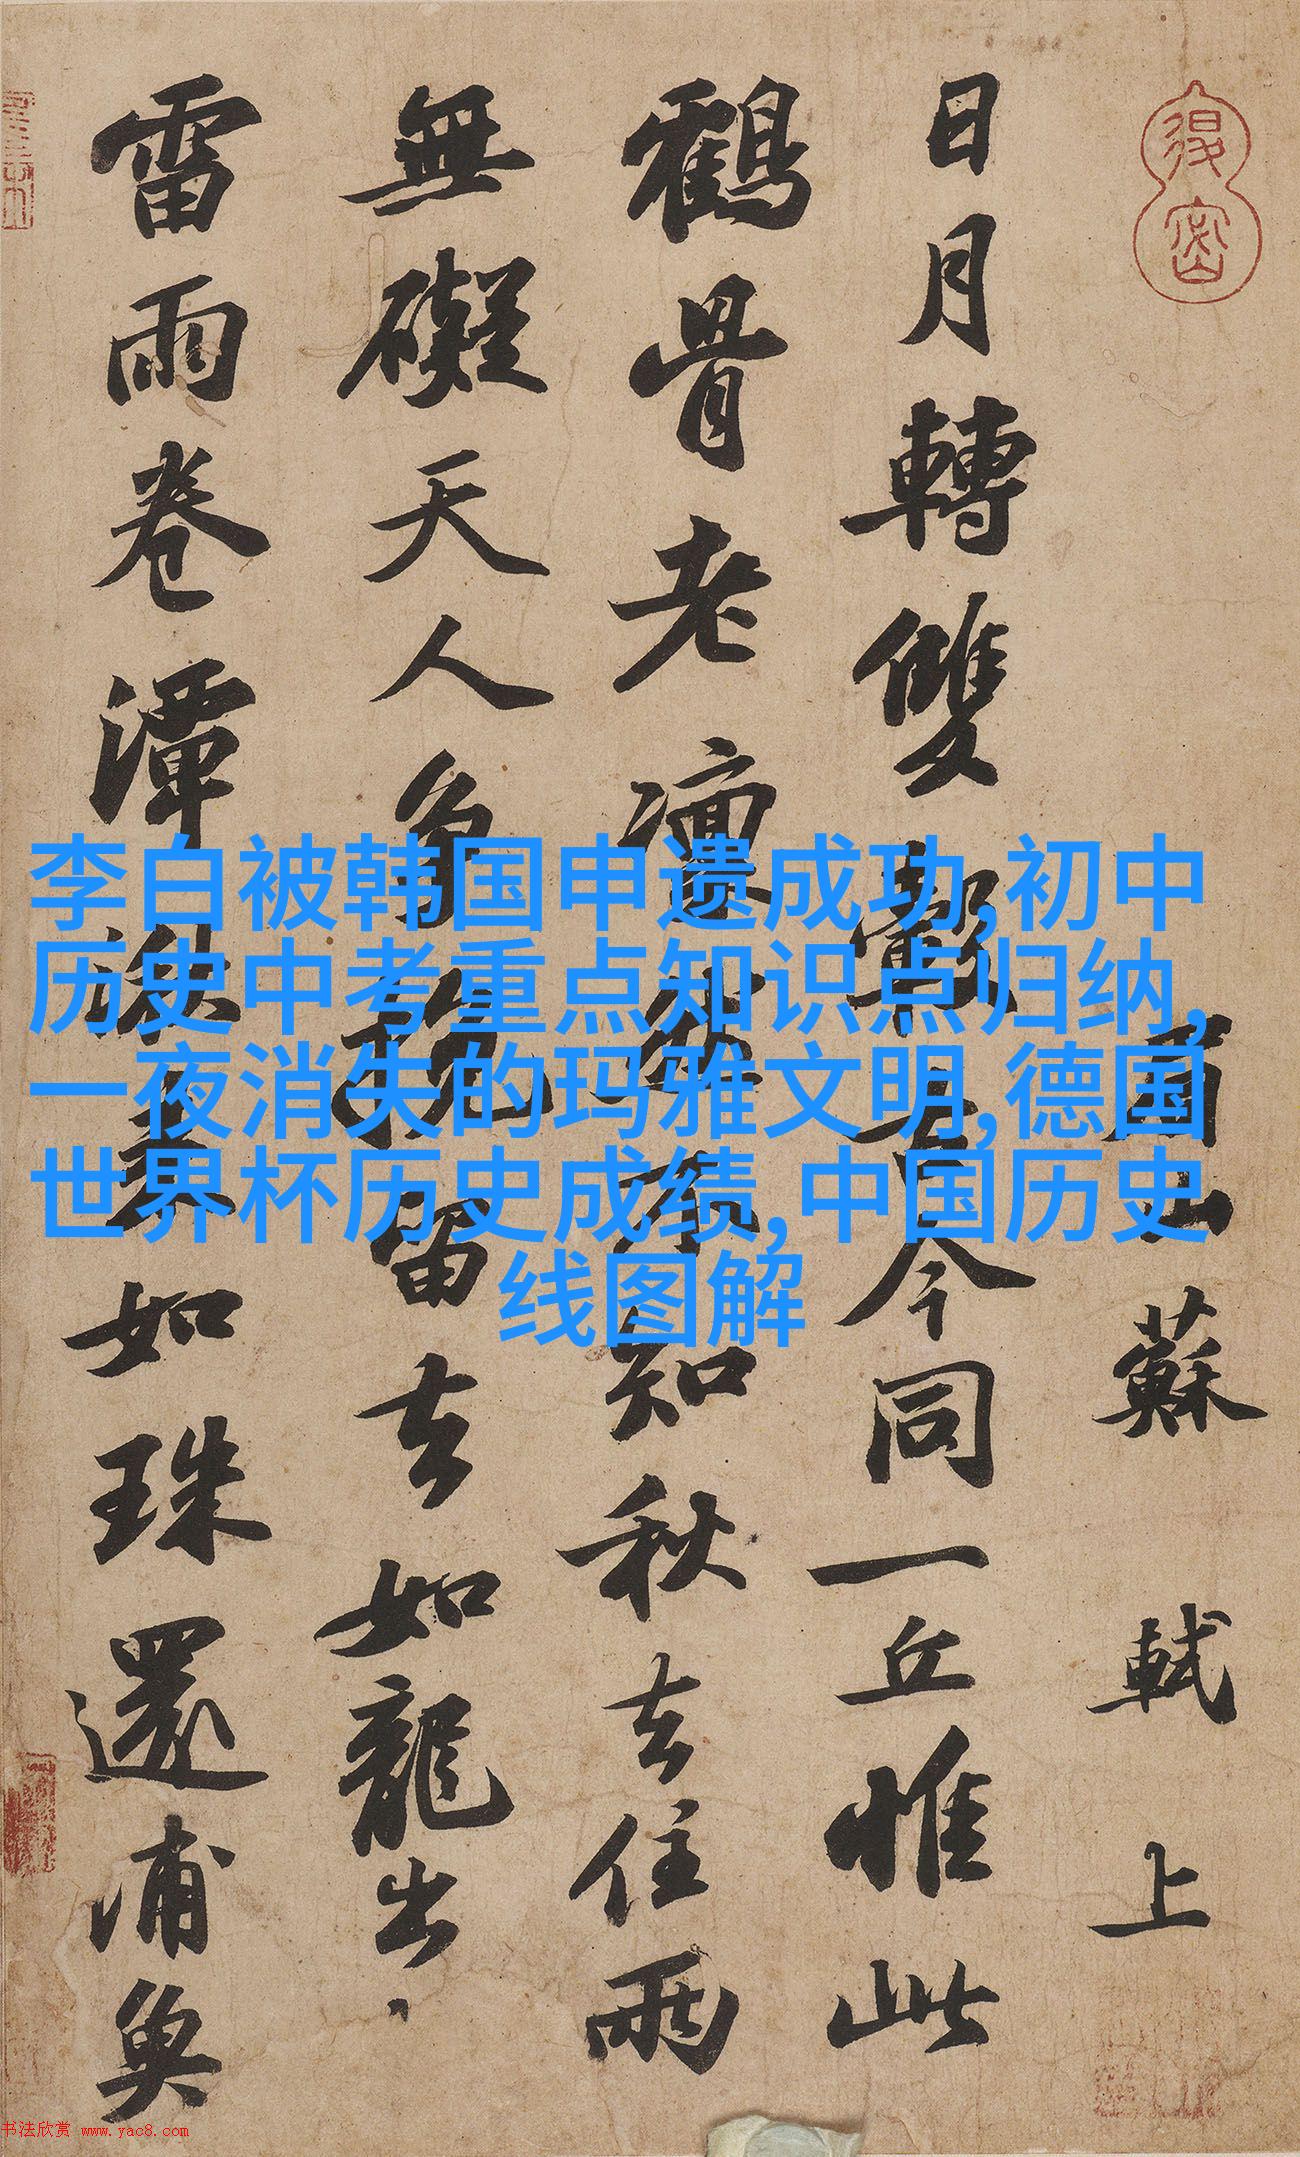 眉山蘇軾上
日月轉雙轂古今同一丘惟此
鶴骨老凜然不知秋去住兩
無礙天人爭挽留去如龍出
雷雨卷潭湫來如珠還浦魚
李白被韩国申遗成功,初中
历史中考重点知识点归纳,
一夜消失的玛雅文明,德国
世界杯历史成绩,中国历史
线图解
书法欣赏 www.yac8.com